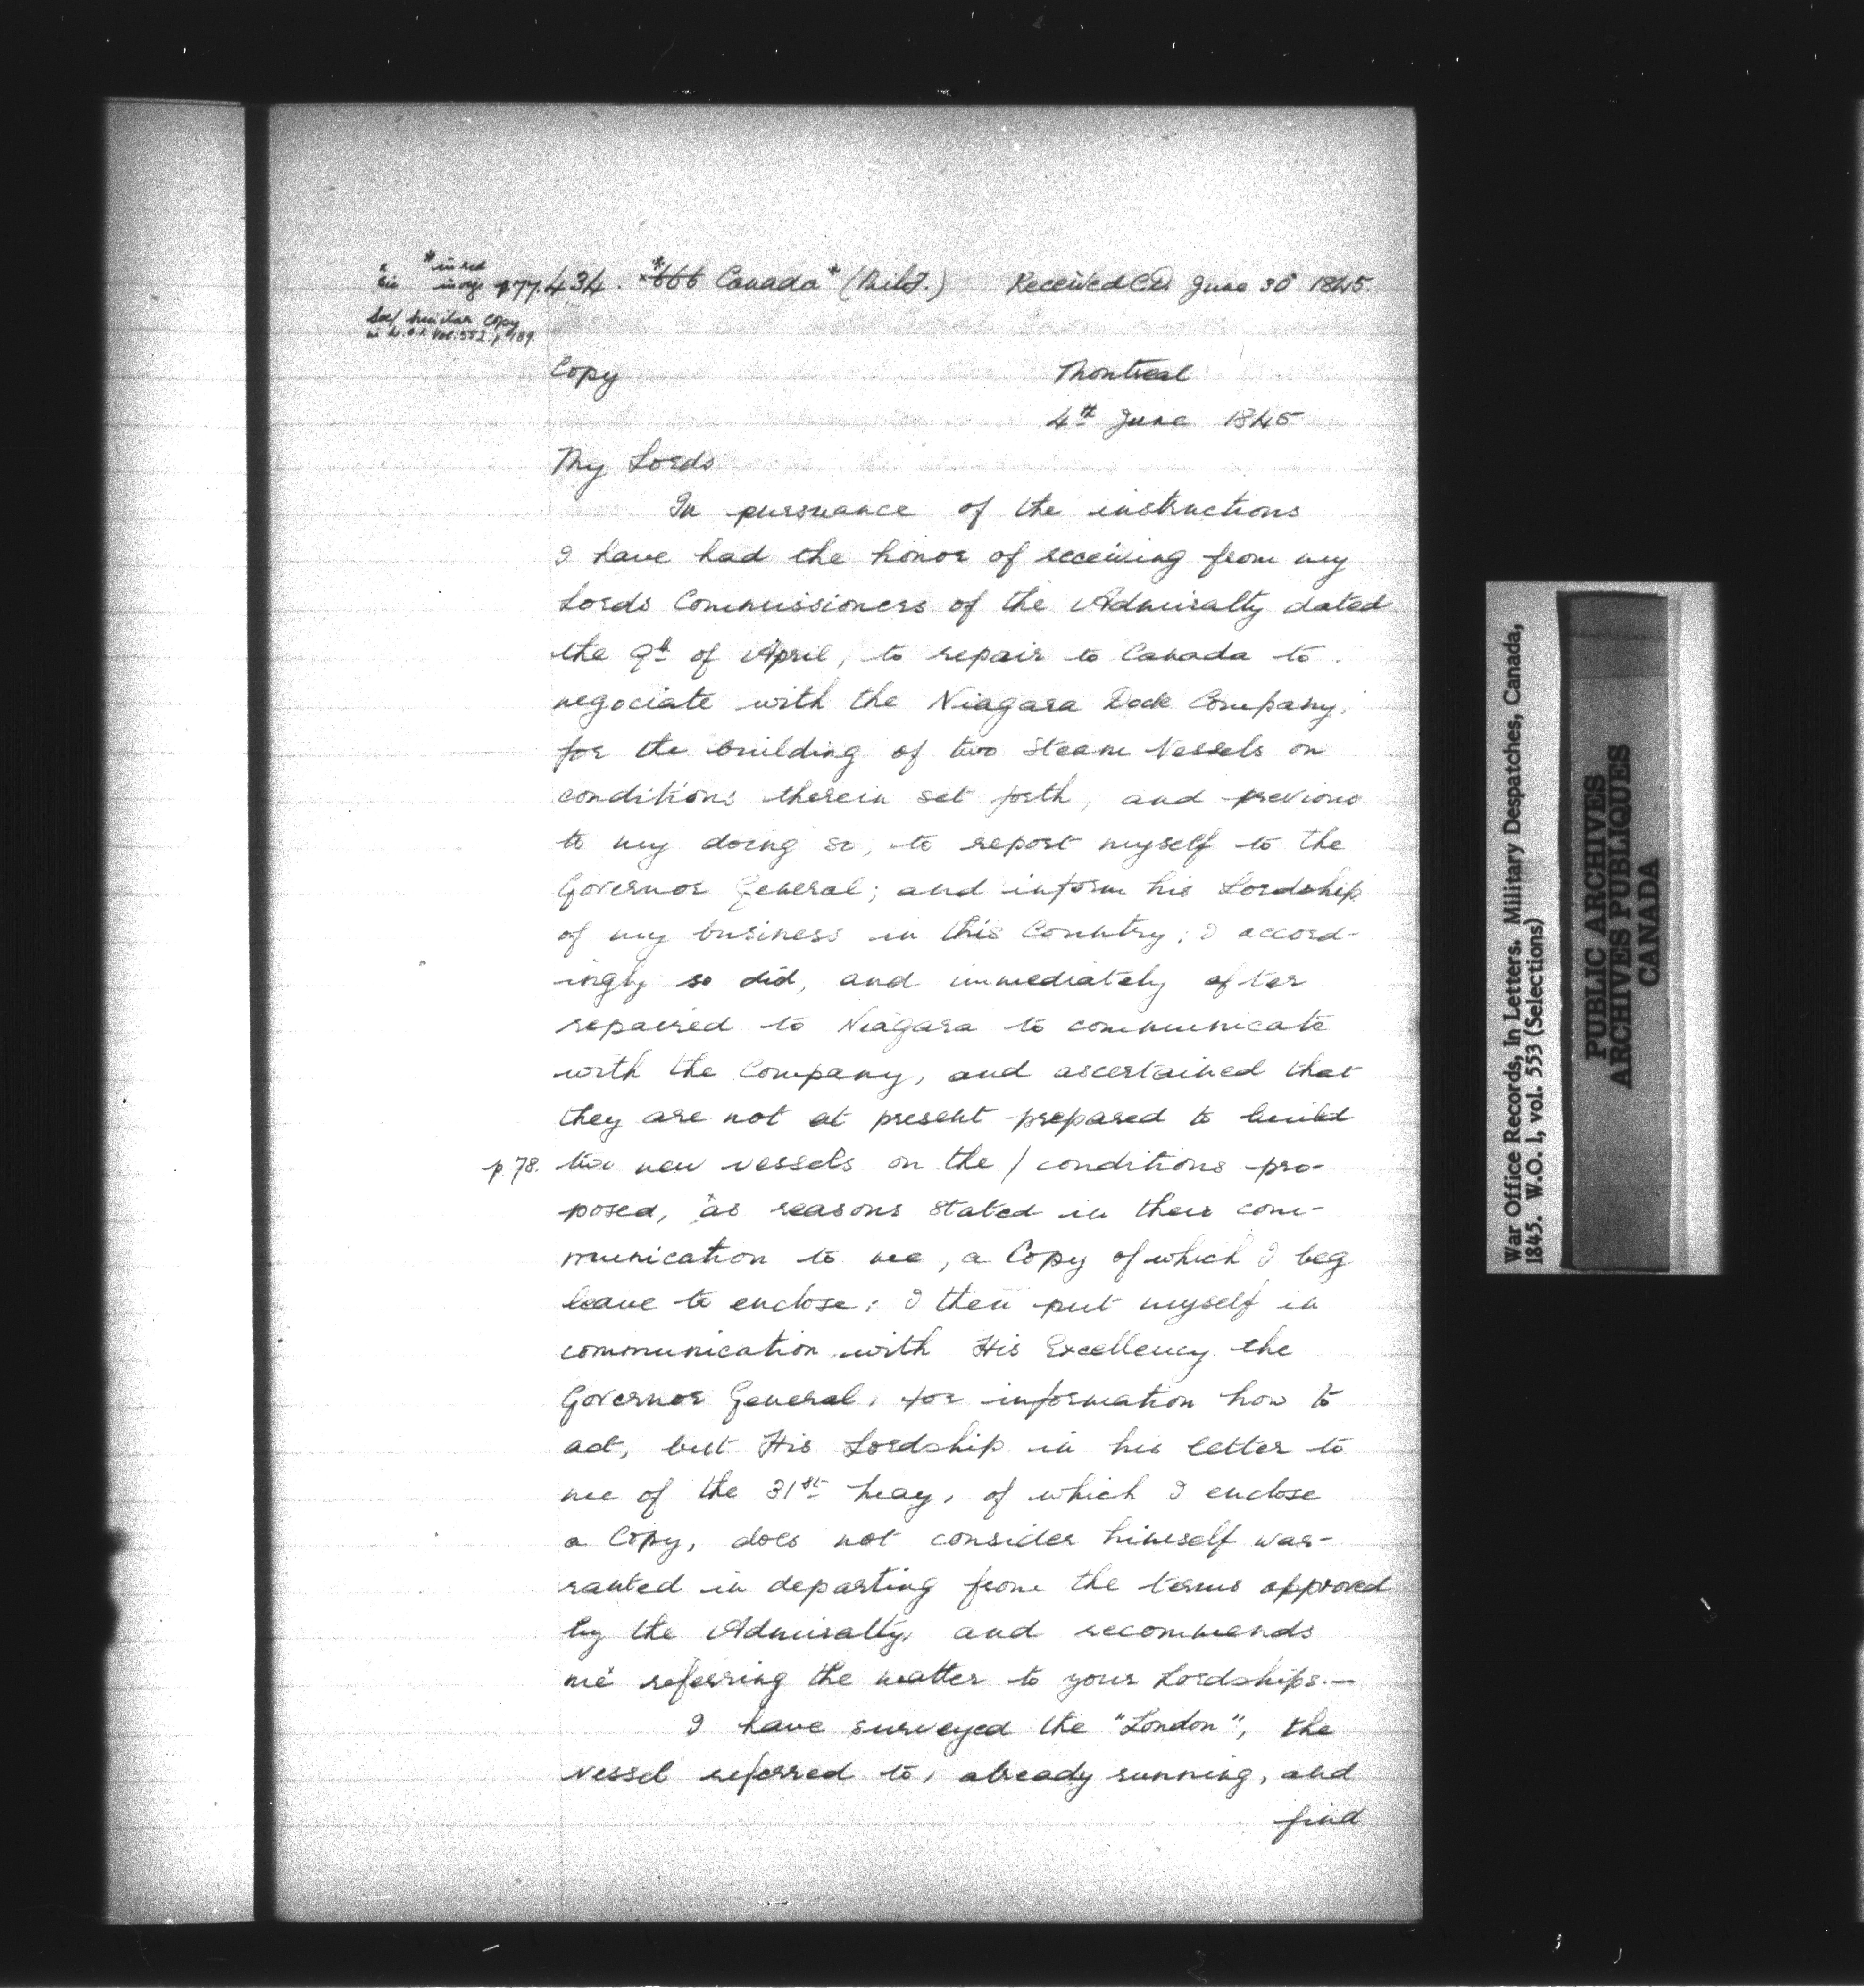 * in red
x sic in orig p77. 434. *x666 Canada* (Milt.) Received CD June 30 1845.
See/ Similar Copy
in W.O.1. Vol. 552. p. 189.
Copy Montreal
4th June 1845
My Lords
In pursuance of the instructions
I have had the honor of receiving from my
Lords Commissioners of the Admiralty dated
the 9th of April, to repair to Canada to
negociate with the Niagara Dock Company,
for the building of two Steam Vessels on
conditions therein set forth, and previous
to my doing so, to report myself to the
Governor General; and inform his Lordship
of my business in this Country; I accord-
ingly so did, and immediately after
repaired to Niagara to communicate
with the Company, and ascertained that
they are not at present prepared to build
p 78. two new vessels on the / conditions pro-
posed, as reasons stated in their com-
munication to me, a Copy of which I beg
leave to enclose; I then put myself in
communication with His Excellency the
Governor General, for information how to
act, but His Lordship in his letter to
me of the 31st May, of which I enclose
a Copy, does not consider himself war-
ranted in departing from the terms approved
by the Admiralty, and recommends
me referring the matter to your Lordships.—
I have surveyed the "London", the
vessel referred to, already running, and
find
War Office Records, In Letters. Military Despatches, Canada,
1845. W.O. 1, vol. 553 (Selections)
PUBLIC ARCHIVES
ARCHIVES PUBLIQUES
CANADA